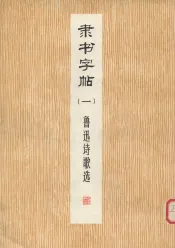 隶书字帖
（一）
鲁迅诗歌选